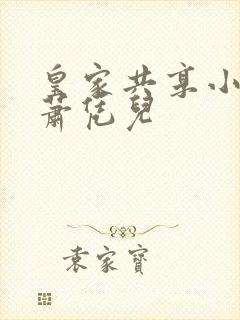 皇家共享小
蕭恁兒
袁家寶